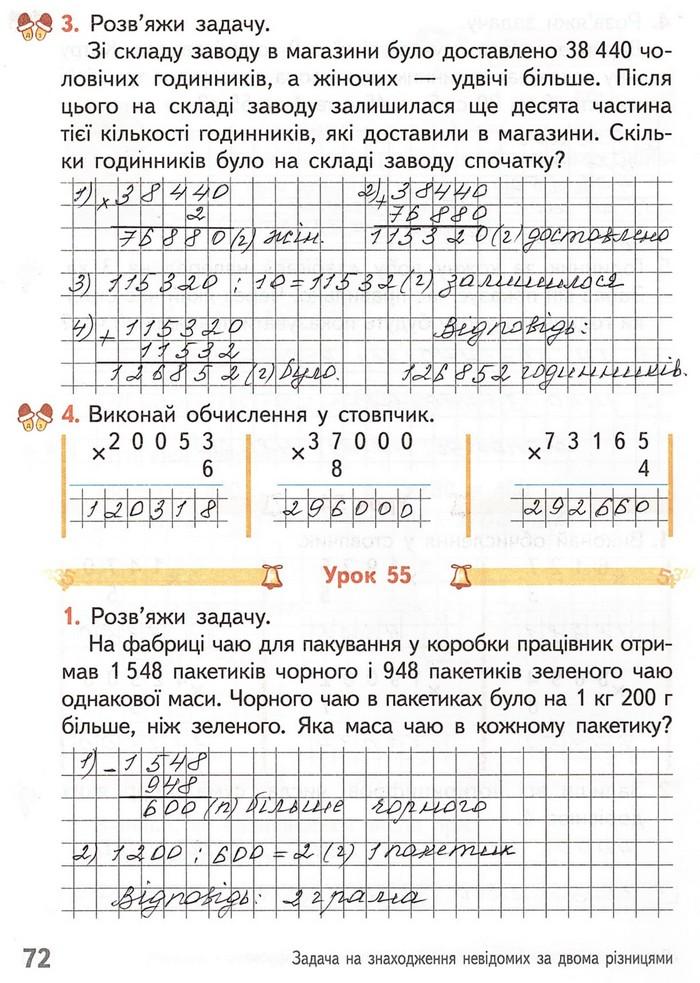 3. Розв'яжи задачу.
Зі складу заводу в магазини було доставлено 38 440 чо-
ловічих годинників, а жіночих — удвічі більше. Після
цього на складі заводу залишилася ще десята частина
тієї кількості годинників, які доставили в магазини. Скіль-
ки годинників було на складі заводу спочатку?
1) × 38440 2) + 38440
2 76880
76880 (г) жін. 115320 (г) доставлено
3) 115320 : 10 = 11532 (г) залишилося
4) + 115320 Відповідь:
11532
126852 (г) було. 126852 годинників.
4. Виконай обчислення у стовпчик.
× 20053 × 37000 × 73165
6 8 4
120318 296000 292660
Урок 55
1. Розв'яжи задачу.
На фабриці чаю для пакування у коробки працівник отри-
мав 1 548 пакетиків чорного і 948 пакетиків зеленого чаю
однакової маси. Чорного чаю в пакетиках було на 1 кг 200 г
більше, ніж зеленого. Яка маса чаю в кожному пакетику?
1) - 1548
948
600 (п) більше чорного
2) 1200 : 600 = 2 (г) 1 пакетик
Відповідь: 2 грама
72 Задача на знаходження невідомих за двома різницями